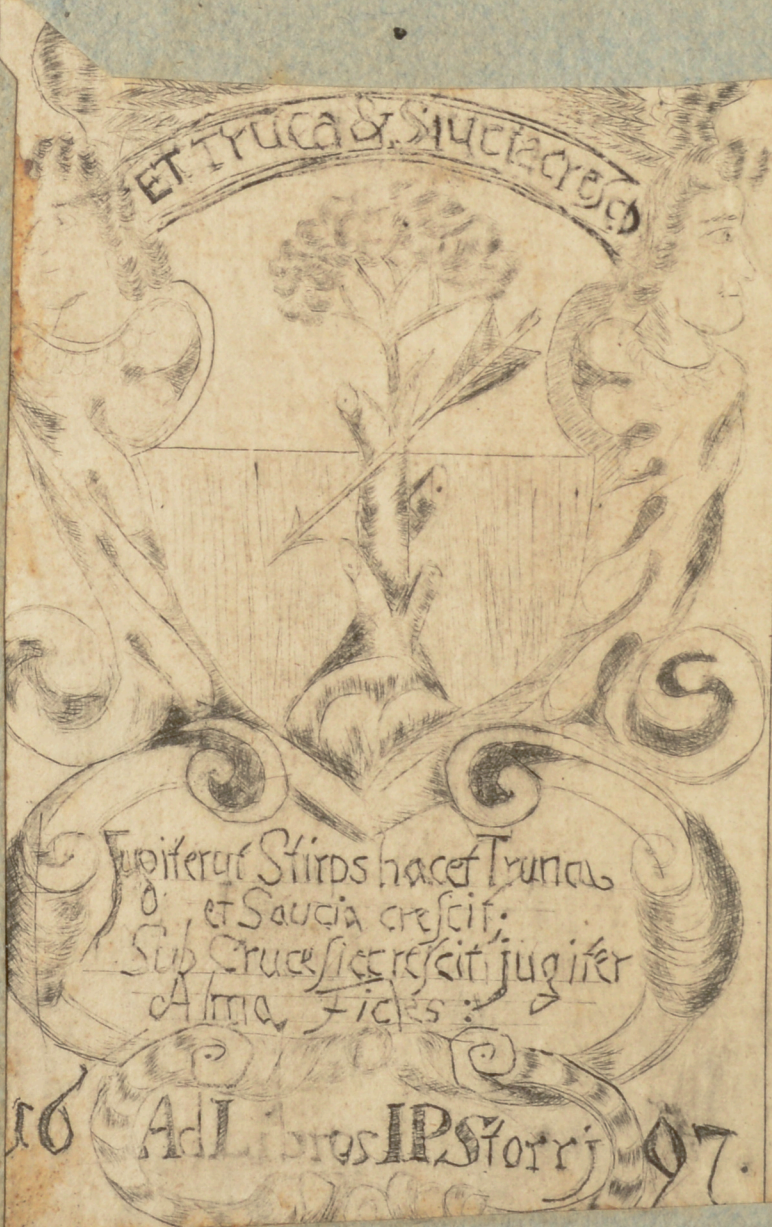 ET Truca & Siucia cresco
Jugiter ut Stirps hæcet Trunca
et Saucia crescit;
Sub Cruce sic crescit jugiter
Alma Fides:
16 Ad Libros IP Storrj 97.